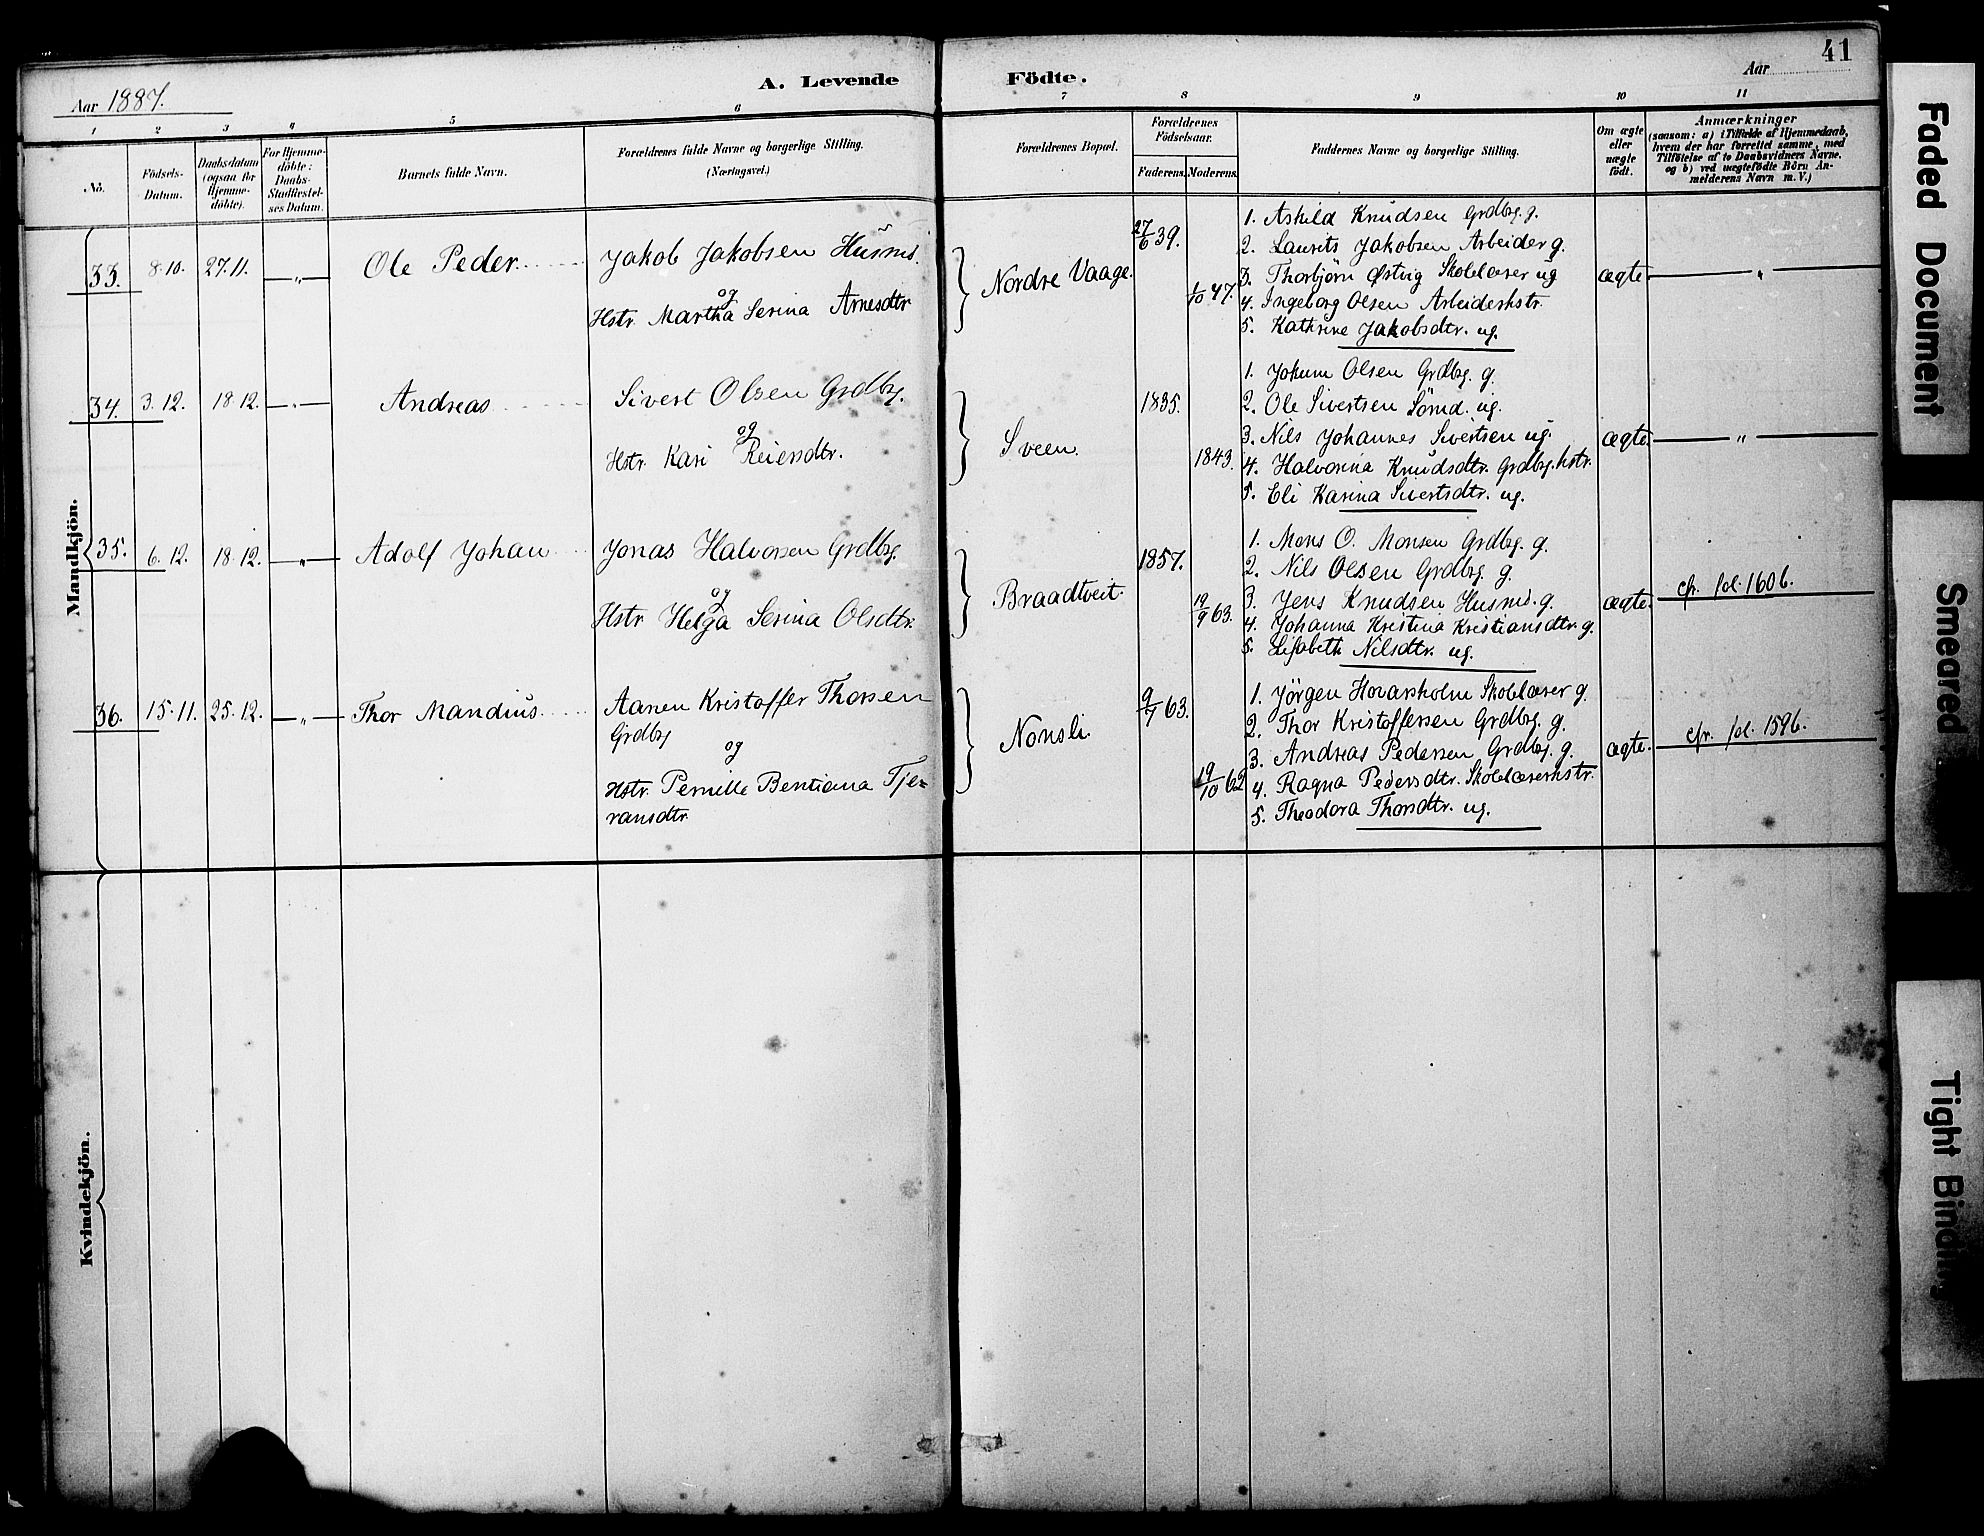 41
Aar 1887.
A. Levende Födte.
Aar
1 2 3 4 5 6 7 8 9 10 11
No.
Födsels-
Datum.
Daabsdatum
(ogsaa for
Hjemme-
döbte).
For Hjemme-
döbte:
Daabs-
Stadfæstel-
ses Datum.
Barnets fulde Navn.
Forældrenes fulde Navne og borgerlige Stilling.
(Næringsvei.)
Forældrenes Bopæl.
Forældrenes
Födselsaar.
Faderens. Moderens.
Faddernes Navne og borgerlige Stilling.
Om ægte
eller
uægte
födt.
Anmærkninger
(saasom: a) i Tilfælde af Hjemmedaab,
hvem der har forrettet samme, med
Tilföielse af to Daabsvidners Navne,
og b) ved uægtefödte Börn An-
melderens Navn m. V.)
Mandkjön.
33. 8.10. 27.11. „ Ole Peder
Jakob Jakobsen Husmd.
og
Hstr. Martha Serina Arnesdtr
Nordre Vaage.
27/6 39.
1/10 47.
1. Askild Knudsen Grdbrg. g.
2. Laurits Jakobsen Arbeider g.
3. Thorbjörn Østvig Skolelærer ug
4. Ingeborg Olsen Arbeiderhstr.
5. Kathrine Jakobsdtr. ug.
ægte „
34. 3.12. 18.12. „ Andreas
Sivert Olsen Grdbrg.
og
Hstr. Kari Reiersdtr.
Sveen.
1835.
1843.
1. Jokum Olsen Grdbrg. g.
2. Ole Sivertsen Sömd. ug.
3. Nils Johannes Sivertsen ug.
4. Halvorina Knudsdtr. Grdbrg.hstr.
5. Eli Karina Sivertsdtr. ug.
ægte „
35. 6.12. 18.12. „ Adolf Johan
Jonas Halvorsen Grdbrg.
og
Hstr Helga Serina Olsdtr.
Braadtveit.
1857.
19/9 63.
1. Mons O. Monsen Grdbrg. g.
2. Nils Olsen Grdbrg. g.
3. Jens Knudsen Husmd. g.
4. Johanna Kristina Kristiansdtr. g.
5. Lisabeth Nilsdtr. ug.
ægte. cfr. fol. 160 b.
36. 15.11. 25.12. „ Thor Mandius
Aanen Kristoffer Thorsen
Grdbrg
og
Hstr. Pernille Bentiana Tje=
ransdtr.
Nonsli.
9/7 63.
19/10 62
1. Jörgen Hovarsholm Skolelærer g.
2. Thor Kristoffersen Grdbrg. g.
3. Andreas Pedersen Grdbrg. g.
4. Ragna Pedersdtr. Skolelærerhstr.
5. Theodora Thorsdtr. ug.
ægte. cfr. fol. 159 b.
Kvindekjön.
Faded Document
Smeared
Tight Bindin